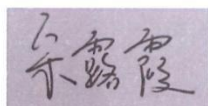 余露霞